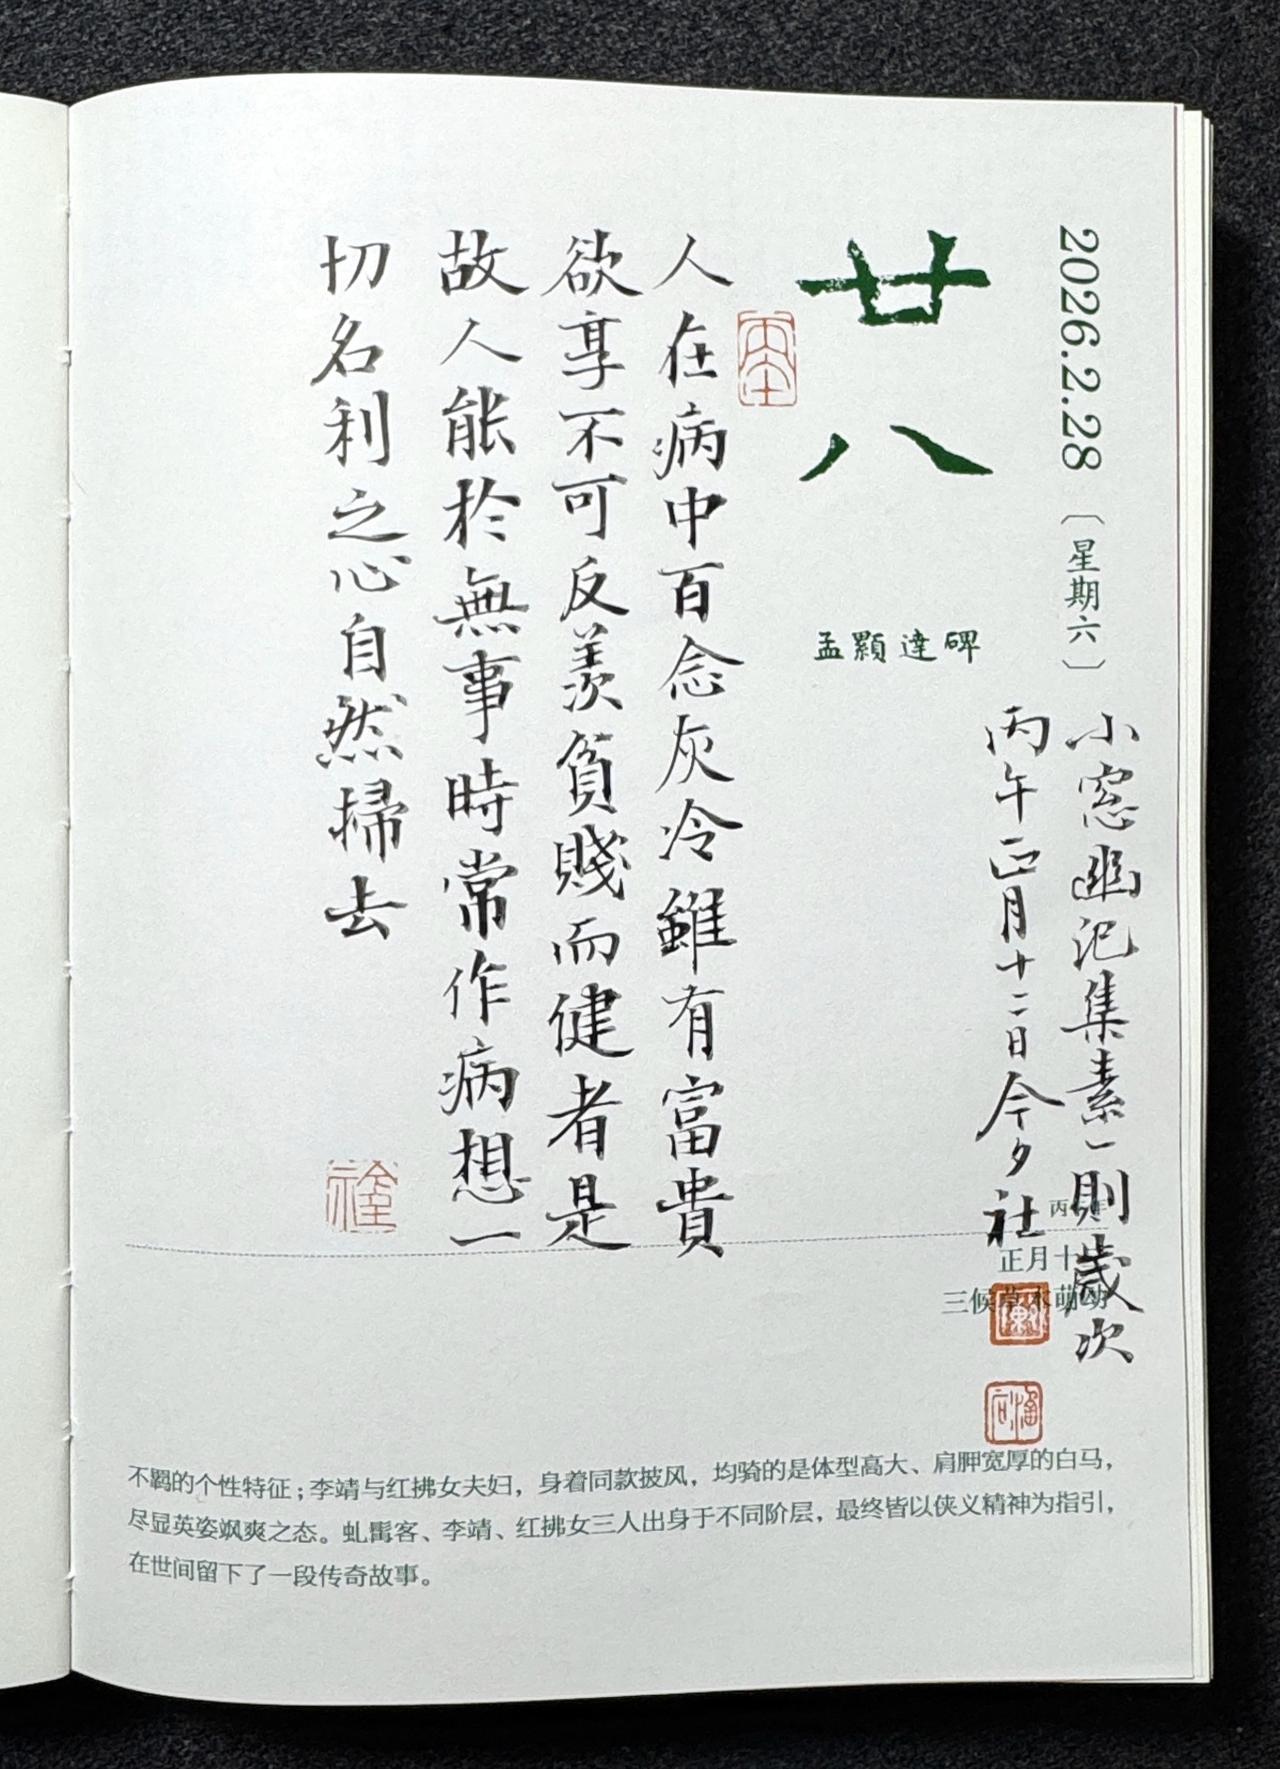 2026.2.28〔星期六〕
廿八
孟顯達碑
小窓幽记集素一則歲次
丙午正月十二日今夕社
人在病中百念灰冷雖有富貴
欲享不可反羨貧賤而健者是
故人能於無事時常作病想一
切名利之心自然掃去
正月十
三候草木萌动
不羁的个性特征；李靖与红拂女夫妇，身着同款披风，均骑的是体型高大、肩胛宽厚的白马，
尽显英姿飒爽之态。虬髯客、李靖、红拂女三人出身于不同阶层，最终皆以侠义精神为指引，
在世间留下了一段传奇故事。